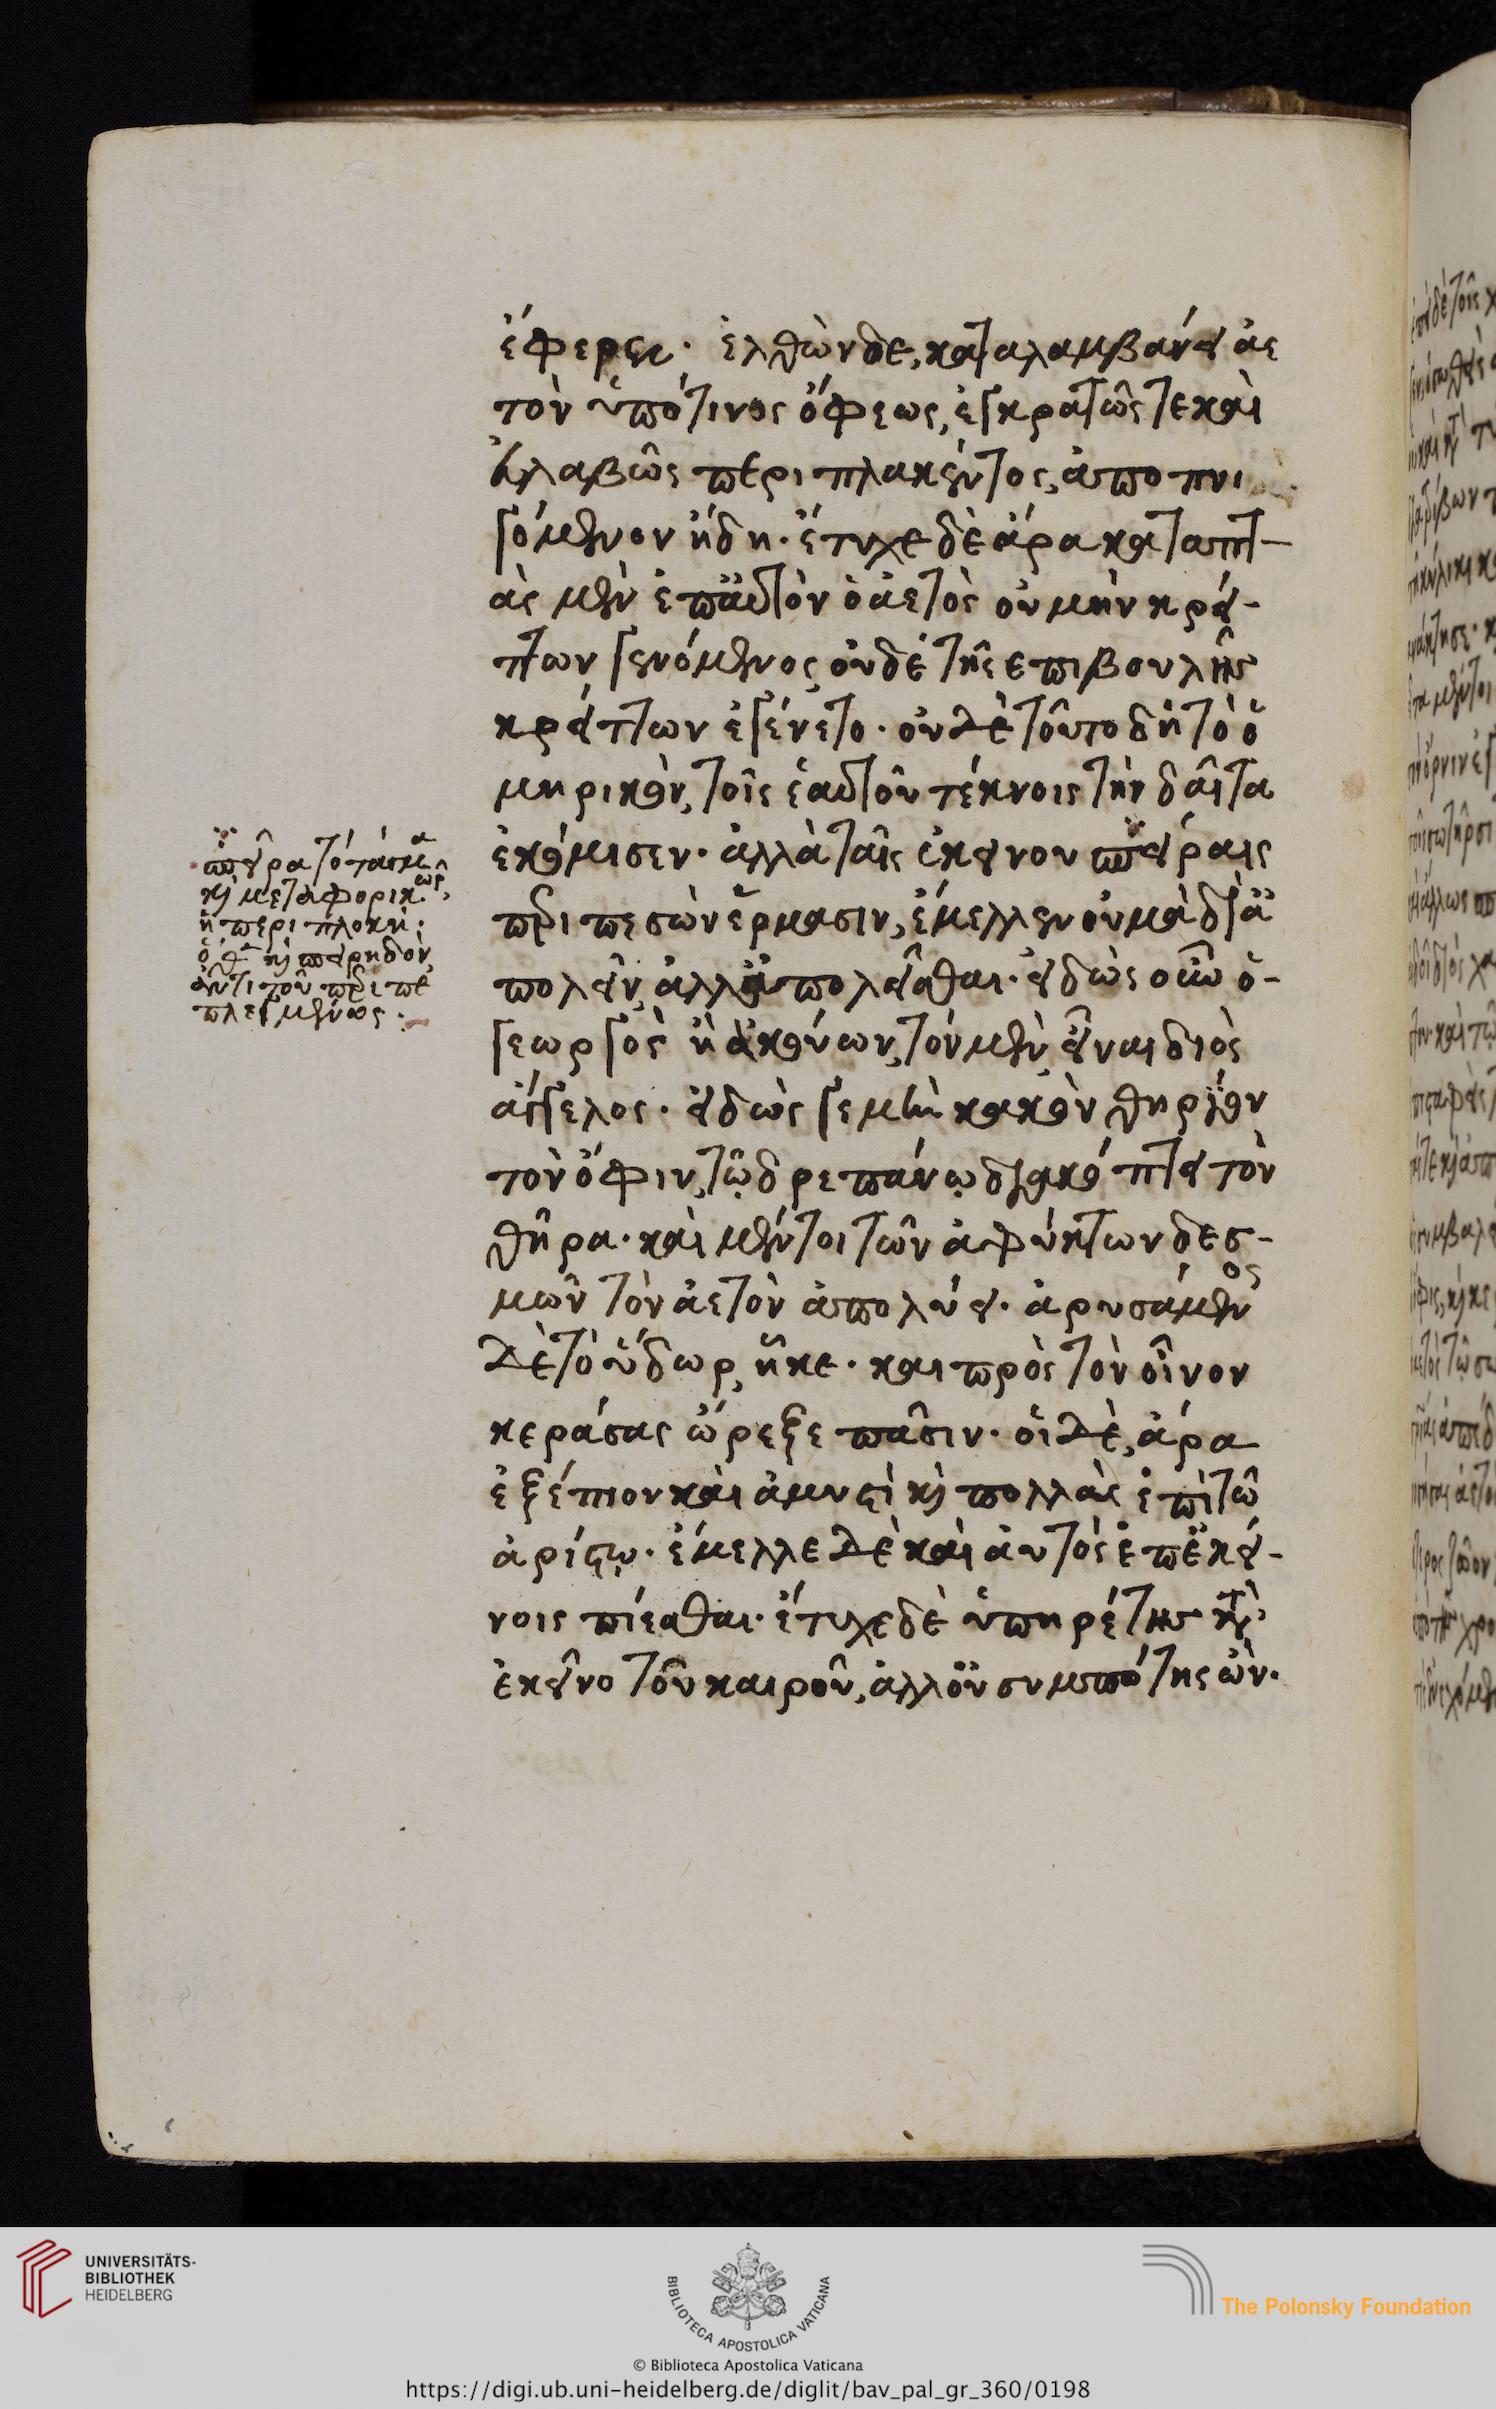 ἔφερεν· ἐλθὼν δὲ, καταλαμβάνει ἀε
τὸν ὑπό τινος ὄφεως, ἐγκρατῶς τε καὶ
εὐλαβῶς περιπλακέντος, ἀποπνι
γόμενον ἤδη· ἔτυχε δὲ ἄρα καταπτ-
ὰς μὲν ἐπ' αὐτὸν ὁ ἀετὸς οὐ μὴν κρεί-
ττων γενόμενος οὐδὲ τῆς ἐπιβουλῆς
κρείττων ἐγένετο· οὐδὲ τοῦτο δὴ τὸ ὁ
μηρικὸν, τοῖς ἑαυτοῦ τέκνοις τὴν δαῖτα
ἐκόμισεν· ἀλλὰ ταῖς ἐκείνου σπείραις
περιπεσὼν ἕρμασιν, ἔμελλεν οὐ μὰ δί' ἀ
πολεῖν, ἀλλ' ἀπολεῖσθαι· εἰδὼς οὖν ὁ
γεωργὸς ἢ ἀκούων, τὸν μὲν εἶναι διὸς
ἄγγελος· εἰδὼς γε μὴν κακὸν θηρίον
τὸν ὄφιν, τῷ δρεπάνῳ διακόπτει τὸν
θῆρα· καὶ μέντοι τῶν ἀφύκτων δεσ-
μῶν τὸν ἀετὸν ἀπολύει· ἀρυσάμενος
δὲ τὸ ὕδωρ, ἧκε· καὶ πρὸς τὸν οἶνον
κεράσας ὤρεξε πᾶσιν· οἱ δὲ, ἄρα
ἐξέπιον καὶ ἀμυστὶ καὶ πολλὰς ἐπὶ τῷ
ἀρίστῳ· ἔμελλε δὲ καὶ αὐτὸς ἐπ' ἐκεί-
νοις πίεσθαι· ἔτυχε δὲ ὑπηρέτης κατ'
ἐκεῖνο τοῦ καιροῦ, ἀλλ' οὐ συμπότης ὤν·
σπεῖρα τό τάγμα
καὶ μεταφορικῶς,
ἡ περιπλοκή·
καὶ σπειρηδὸν
ἀντὶ τοῦ περιπε
πλεγμένως·
UNIVERSITÄTS-
BIBLIOTHEK
HEIDELBERG
BIBLIOTECA APOSTOLICA VATICANA
The Polonsky Foundation
© Biblioteca Apostolica Vaticana
https://digi.ub.uni-heidelberg.de/diglit/bav_pal_gr_360/0198